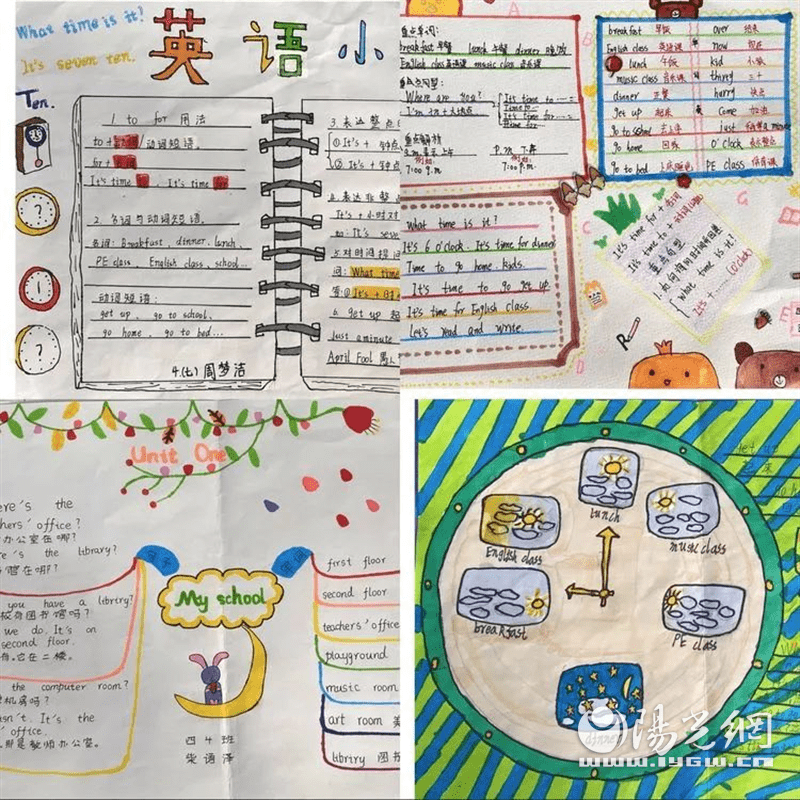 What time is it?
It's seven ten.
Ten.
英语小
1 to for 用法
to +
/动词短语。
for +
It's time
It's time for
2. 名词与动词短语
名词: Breakfast, dinner. lunch,
PE class, English class, school...
动词短语:
get up, go to school,
go home, go to bed...
4(七) 周梦洁
3. 表达整点
①It's + 钟点
②It's + 钟点
It's + 小时
5. 对时间提问
问: What time
It's +
6. get up 起
Just a minute
April Fool
breakfast 早餐 lunch 午餐 dinner 晚饭
English class 英语课 music class 音乐课
Where are you?
It's time to
Time to
It's time for
Time for
a.m. 表示上午
7:00 a.m.
p.m. 下午
7:00 p.m.
breakfast 早饭
English class 英语课
lunch 午饭
music class 音乐课
dinner 正餐
get up 起床
go to school 去上学
go home 回家
go to bed 上床睡觉
over 结束
now 现在
kid 小孩
thirty 三十
hurry 快点
come 加油
just
o'clock 表示整点
PE class 体育课
What time is it?
It's 6 o'clock. It's time for dinner
Time to go home. kids.
It's time to go get up
It's time for English class
let's read and write.
It's time for + 名词
It's time to + 动词
重点句型
如何询问时间和回答
What time is it?
It's + ...... (o'clock)
Unit One
ere's the
chers' office?
办公室在哪?
re's the library?
馆在哪?
you have a librtry?
校有图书馆吗?
we do. It's on
second floor.
有。它在二楼。
the computer room?
计机房吗?
isn't. It's the
office.
那是教师办公室。
My school
四4班
first floor
second floor
teachers' office
playground
music room
art room
librtry 图书
Lunch
English class
music class
breakfast
PE class
陽光網
www.iygw.cn